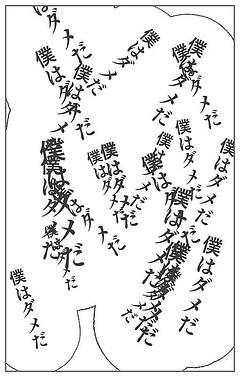 僕はダメだ
僕はダメだ
僕はダメだ
僕はダメだ
僕はダメだ
僕はダメだ
僕はダメだ
僕はダメだ
僕はダメだ
僕はダメだ
僕はダメだ
僕はダメだ
僕はダメだ